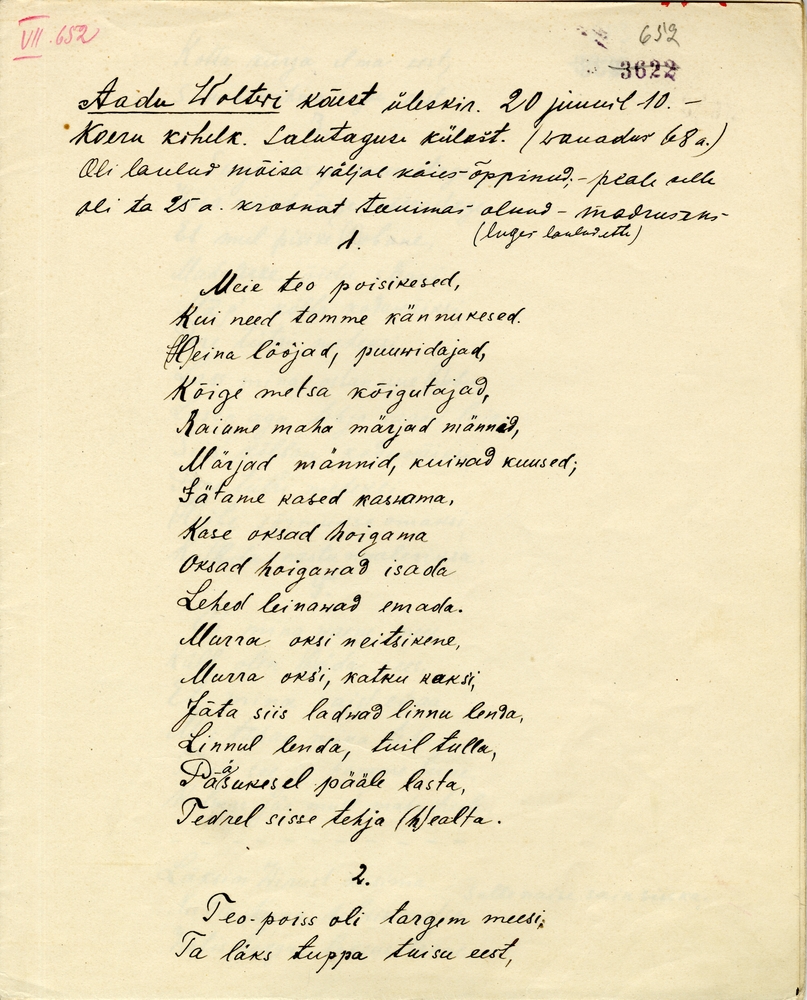 VII. 652
652
3622
Aadu Woltri käest üleskir. 20 juunil 10. –
Koeru kihelk. Salutaguse külast. (wanadus 68 a.)
Oli laulud mõisa wäljal käies õppinud; – peale selle
oli ta 25 a. kroonut teenimas olnud – madruseks
(luges laulud ette)
1.
Meie teo poisikesed,
Kui need tamme kännukesed.
(H)eina lööjad, puuwidajad,
Kõige metsa kõigutajad,
Raiume maha märjad männid,
Märjad männid, kuiwad kuused;
Jätame kased kaswama,
Kase oksad hoigama
Oksad hoigawad isada
Lehed leinawad emada.
Murra oksi neitsikene,
Murra oksi, katku kaksi,
Jäta siis ladwad linnu lenda,
Linnul lenda, tuil tulla,
Pääsukesel pääle lasta,
Tedrel sisse tehja (h)ealta.
2.
Teo-poiss oli targem meesi,
Ta läks tuppa tuisu eest,